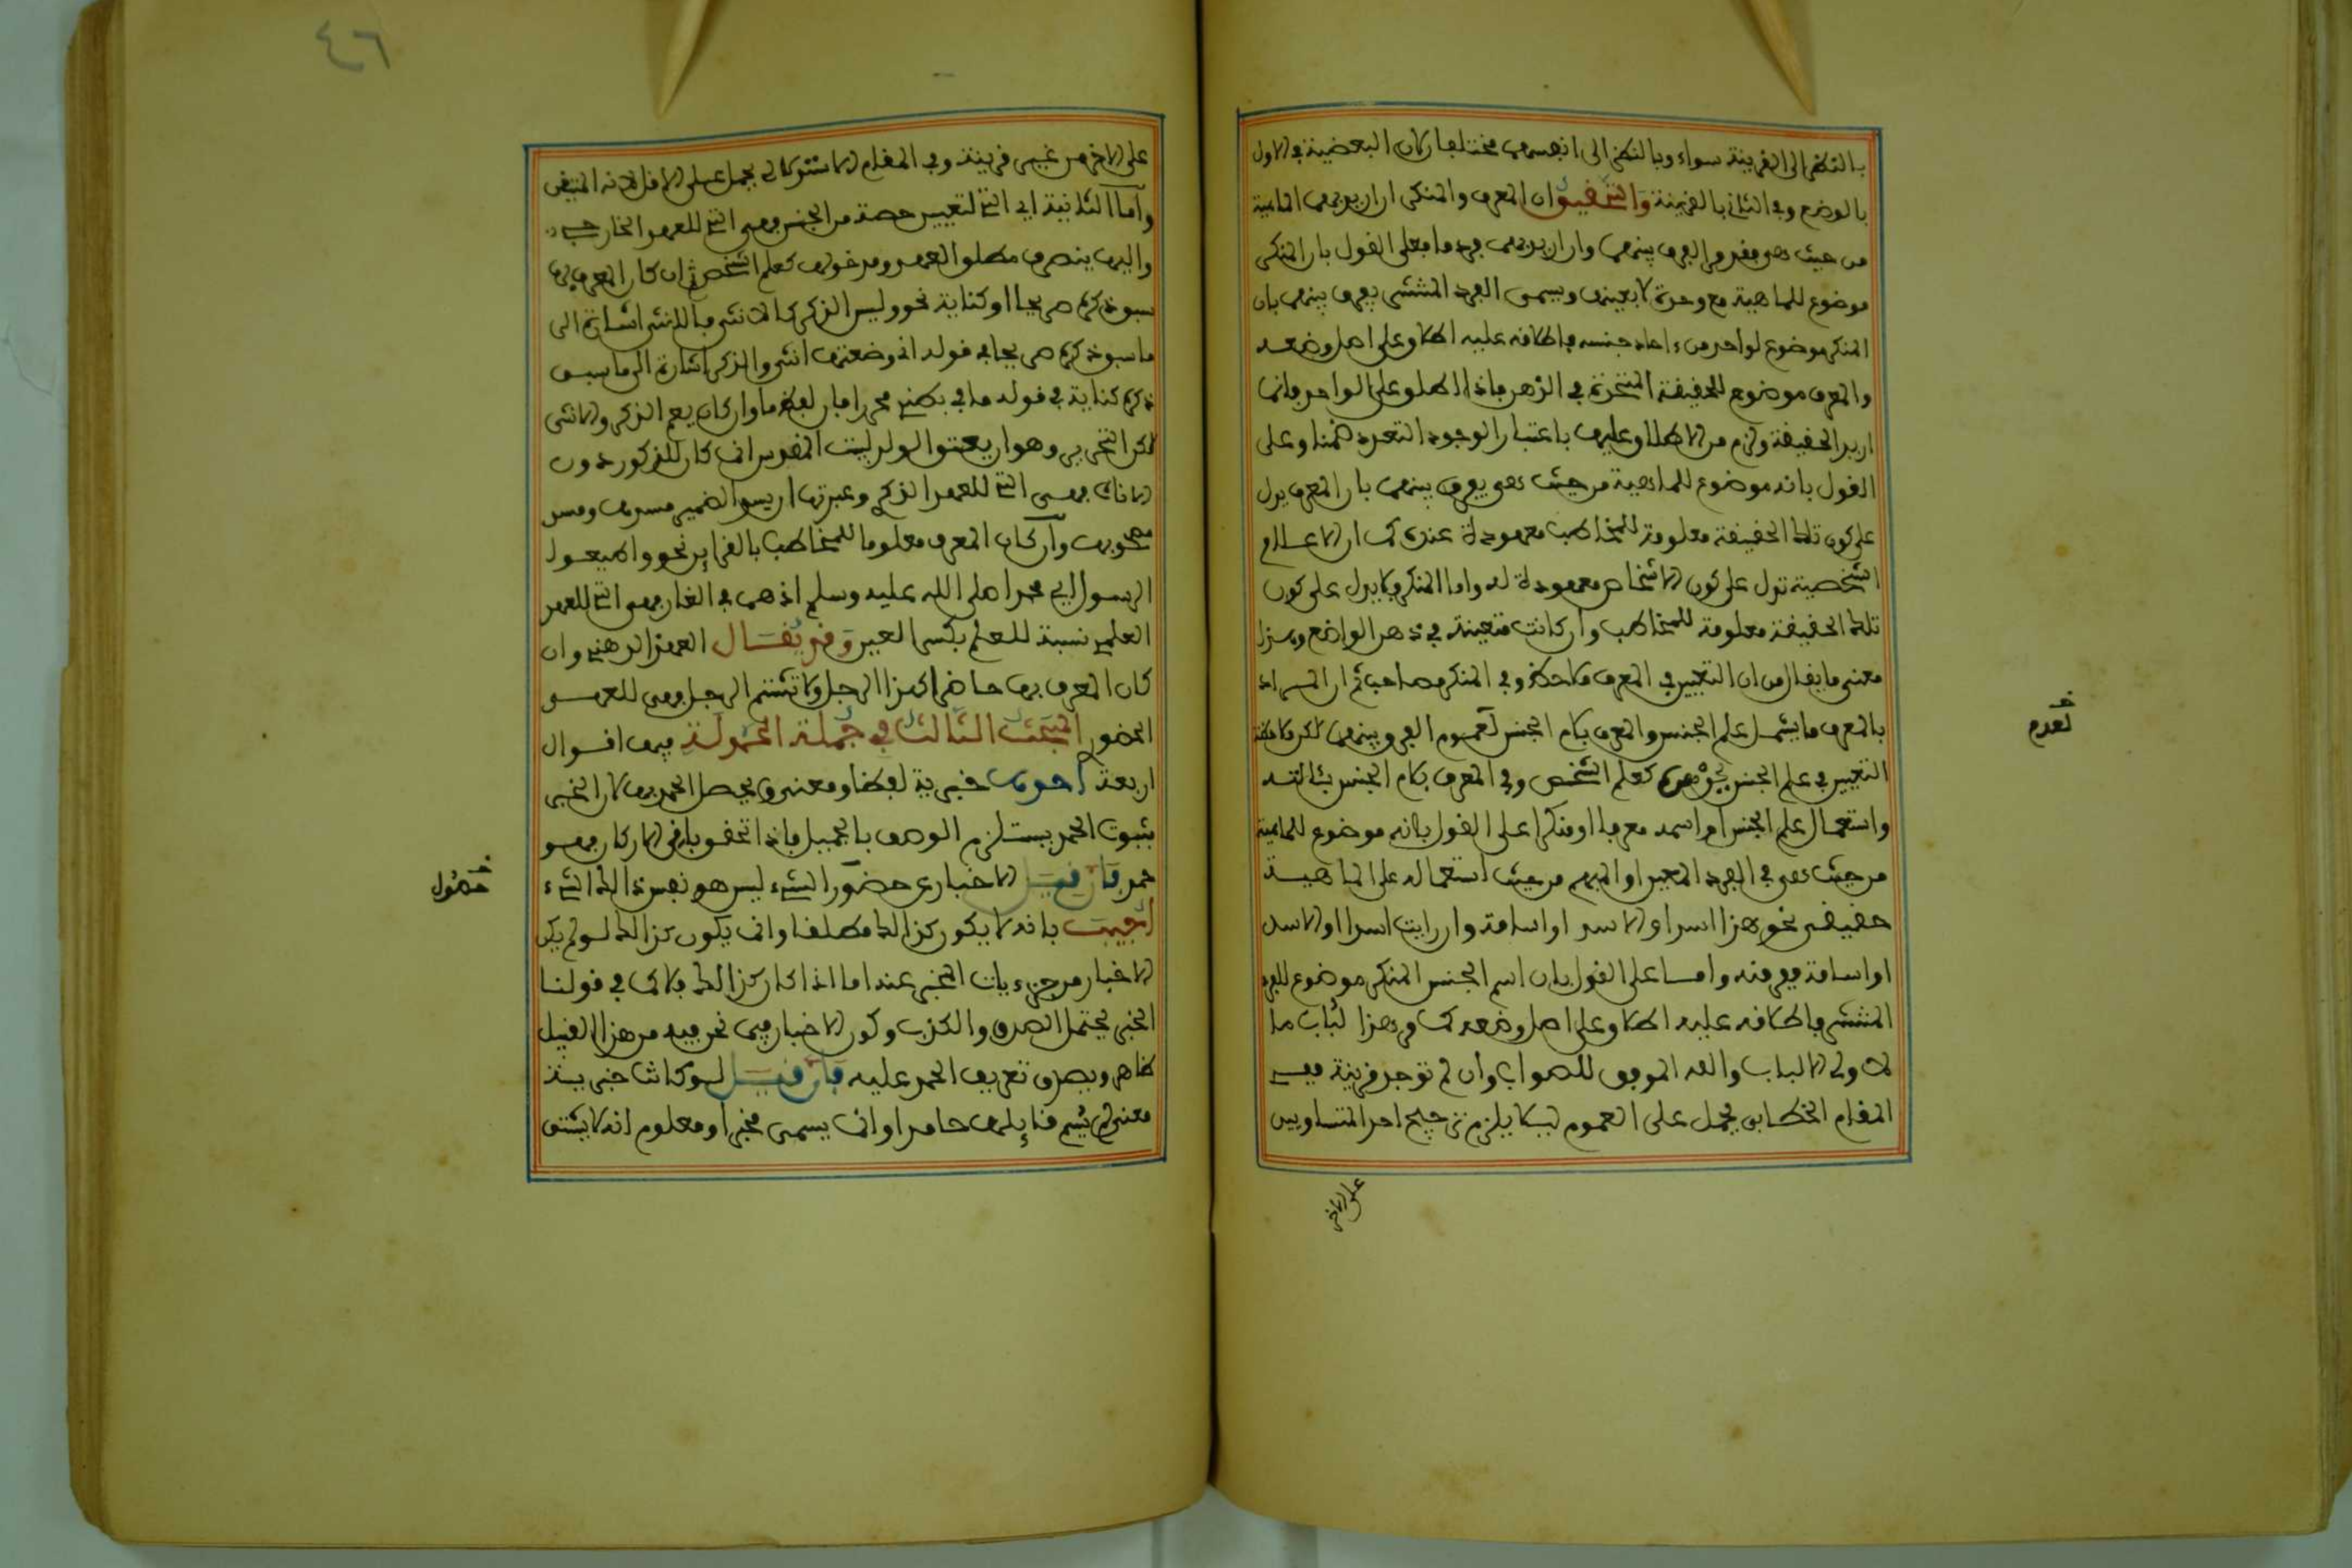 بالنظر الى القرينة سواء وبالنظر الى انفسهما مختلفان كان البعضية في الاول
بالوضع وفي الثاني بالقرينة والتحقيق ان المعرف والمنكر ان اريد بهما الماهية
من حيث هي فقد مر الفرق بينهما وان اريد بهما فرد ما فعلى القول بان المنكر
موضوع للماهية مع وحدة لا بعينها ويسمى الفرد المنتشر يفرق بينهما بان
المنكر موضوع لواحد من ءاحاد جنسه فاطلاقه عليه اطلاق على اصل وضعه
والمعرف موضوع للحقيقة المتحدة في الذهن فاذا اطلق على الواحد فانما
اريد الحقيقة ولزم من الاطلاق عليها باعتبار الوجود التعدد ضمنا وعلى
القول بانه موضوع للماهية من حيث هي يفرق بينهما بان المعرف يدل
على كون تلك الحقيقة معلومة للمخاطب معهودة عنده كما ان الاعلام
الشخصية تدل على كون الاشخاص معهودة له واما المنكر فلا يدل على كون
تلك الحقيقة معلومة للمخاطب وان كانت متعينة في ذهن الواضع وهذا
معنى ما يقال من ان التعيين في المعرف ملاحظ وفي المنكر مصاحب ثم ان المراد
بالمعرف ما يشمل علم الجنس والمعرف بلام الجنس لعموم الفرق بينهما لكن ملاحظة
التعيين في علم الجنس بجوهره كعلم الشخص وفي المعرف بلام الجنس بئالته
واستعمال علم الجنس او اسمه معرفا او منكرا على القول بانه موضوع للماهية
من حيث هي في الفرد المعين او المبهم من حيث استعماله على الماهية
حقيقي نحو هذا اسد او الاسد او اسامة وان رايت اسدا او الاسد
او اسامة ففر منه واما على القول بان اسم الجنس المنكر موضوع للفرد
المنتشر فاطلاقه عليه اطلاق على اصل وضعه كما مر هذا لباب ما
لاولي الالباب والله الموفق للصواب وان لم توجد قرينة ففي
المقام الخطابي يحمل على العموم ليلا يلزم ترجيح احد المتساويين
تقدم
على الاخر
٤٦
على الاخر من غير قرينة وفي المقام الاستدلالي يحمل على الاقل لانه المتيقن
واما الثانية اي التي لتعيين حصة من الجنس فهي التي للعهد الخارجي
واليها ينصرف مطلق العهد ومدخولها كعلم الشخص ثم ان كان المعرف بها
سبق ذكره صريحا او كناية نحو وليس الذكر كالانثى فالانثى اشارة الى
ما سبق ذكره صريحا في قوله اني وضعتها انثى والذكر اشارة الى ما سبق
ذكره كناية في قوله ما في بطني محررا فان لفظ ما وان كان يعم الذكر والانثى
لكن التحرير وهو ان يعتق الولد لبيت المقدس انما كان للذكور دون
الاناث فهي التي للعهد الذكري وعبرتها ان يسد الضمير مسدها ومس
مصحوبها وان كان المعرف معلوما للمخاطب بالقراين نحو واطيعوا
الرسول اي محمدا صلى الله عليه وسلم اذ هما في الغار فهي التي للعهد
العلمي نسبة للعلم بكسر العين وقد يقال العهد الذهني وان
كان المعرف بها حاضرا كهذا الرجل ولا تشتم الرجل فهي للعهد
الحضوري المبحث الثالث في جملة الحمدلة فيها اقوال
اربعة احدها خبرية لفظا ومعنى ويحصل الحمد بها لان الخبر
بثبوت الحمد يستلزم الوصف بالجميل فاذا تحقق باقي الاركان فهو
حمد فان قيل الاخبار عن حضور الشيء ليس هو نفس ذلك الشيء
اجيب بانه لا يكون كذلك مطلقا وانما يكون كذلك لو لم يكن
الاخبار من جزءيات المخبر عنه اما اذا كان كذلك فلا كما في قولنا
الخبر يحتمل الصدق والكذب وكون الاخبار فيما نحن فيه من هذا القبيل
ظاهر ويصدق تعريف الحمد عليه فان قيل لو كانت خبرية
معنى لم يسم قايلها حامدا وانما يسمى مخبرا ومعلوم انه لا يشتق
حصول